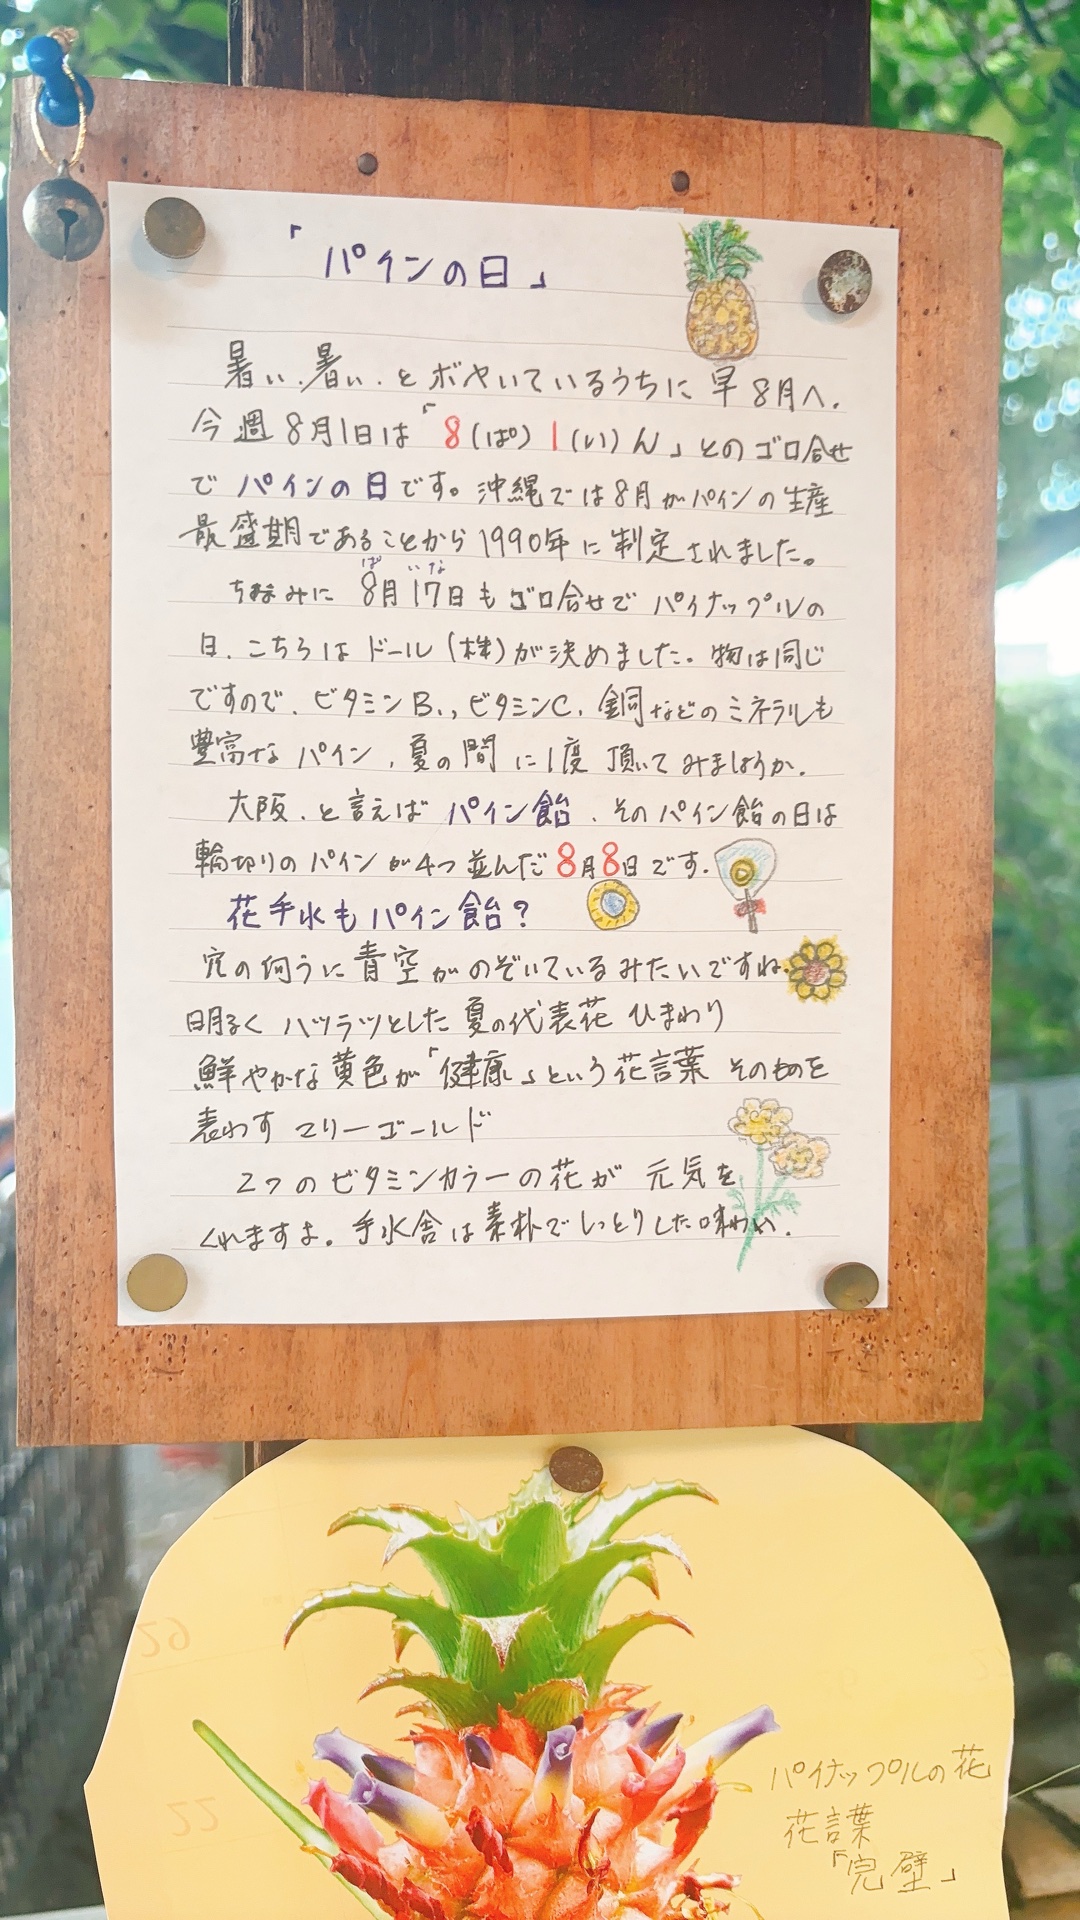 「パインの日」
暑い、暑い、とボヤいているうちに早8月へ。
今週8月1日は「8(ぱ)1(い)ん」とのゴロ合せ
でパインの日です。沖縄では8月がパインの生産
最盛期であることから1990年に制定されました。
ぱ いな
ちなみに 8月17日もゴロ合せでパイナップルの
日、こちらはドール(株)が決めました。物は同じ
ですので、ビタミンB1、ビタミンC、銅などのミネラルも
豊富なパイン、夏の間に1度頂いてみましょうか。
大阪、と言えばパイン飴、そのパイン飴の日は
輪切りのパインが4つ並んだ8月8日です。
花手水もパイン飴?
穴の向うに青空がのぞいているみたいですね。
明るくハツラツとした夏の代表花 ひまわり
鮮やかな黄色が「健康」という花言葉そのものを
表わすマリーゴールド
2つのビタミンカラーの花が元気を
くれますよ。手水舎は素朴でしっとりした味わい。
パイナップルの花
花言葉
「完璧」
29
22